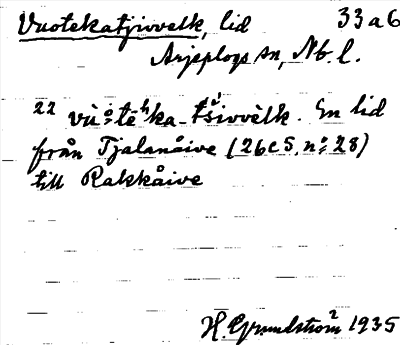 Vuotekatjivvelk, lid 33a6
Arjeplogs sn, Nb. l.
22 vùo̊:tēʰka-tšivvèlk. En lid
från Tjalanåive (26c5, n:o 28)
till Rakkåive
H. Grundström 1935